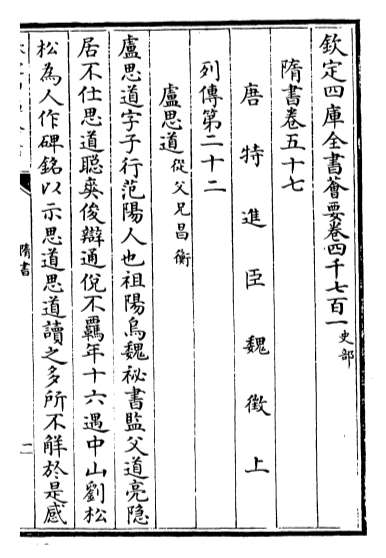 欽定四庫全書薈要卷四千七百一史部
隋書卷五十七
唐特進臣魏徵上
列傳第二十二
盧思道從父兄昌衡
盧思道字子行范陽人也祖陽烏魏祕書監父道亮隱
居不仕思道聰爽俊辯通侻不羈年十六遇中山劉松
松為人作碑銘以示思道思道讀之多所不解於是感
隋書